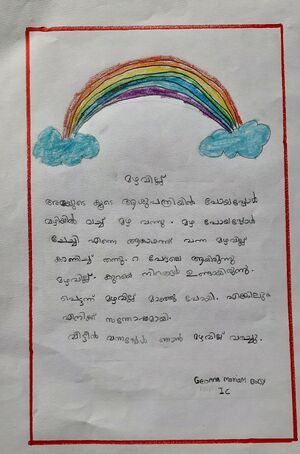 മഴവില്ല്
അമ്മയുടെ കൂടെ ആശുപത്രിയിൽ പോയപ്പോൾ
വഴിയിൽ വച്ച് മഴ വന്നു. മഴ പോയപ്പോൾ
ചേച്ചി എന്നെ ആകാശത്ത് വന്ന മഴവില്ല്
കാണിച്ച് തന്നു. റ പോലെ ആയിരുന്നു
മഴവില്ല്. കുറേ നിറങ്ങൾ ഉണ്ടായിരുന്നു.
പെട്ടന്ന് മഴവില്ല് മാഞ്ഞു പോയി. എങ്കിലും
എനിക്ക് സന്തോഷമായി.
വീട്ടിൽ വന്നപ്പോൾ ഞാൻ മഴവില്ല് വരച്ചു.
Mariam
1C